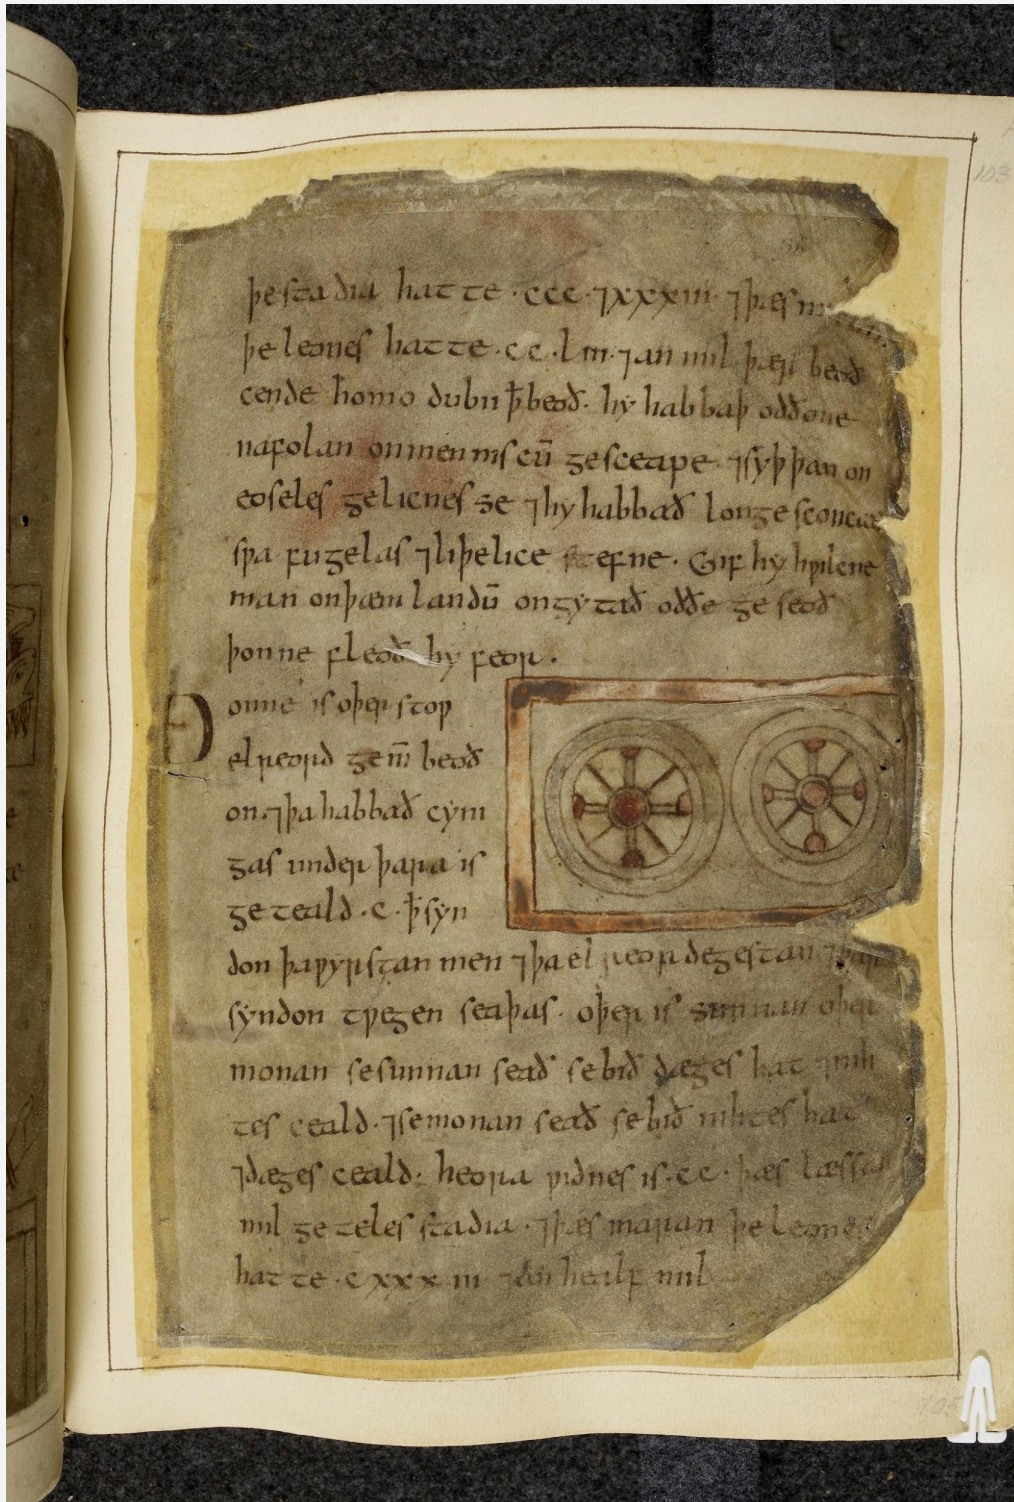 þe stadia hatte ·ccc· ⁊xxxiii· ⁊þæs
þe leones hatte ·cc· liii· ⁊an mil þær beoð
cende homo dubii ꝥ beoð· hy habbaþ oððone
nafolan onmenniscū gesceape ⁊syþþan on
eoseles gelicnesse ⁊hy habbað longe sconcan
sƿa fugelas ⁊liþelice stefne· Gif hy hƿilcne
man onþæm landū ongytað oððe geseoð
þonne fleoð hy feor·
Ðonne is oþer stoƿ
elreord gem̄ beoð
on· ⁊þa habbað cyni
gas under þara is
geteald ·c· ꝥ syn
don þa ƿyrstan men ⁊þa elreordegestan ⁊þær
syndon tƿegen seaþas· oþer is sunnan oþer
monan se sunnan seað se bið dæges hat ⁊nih
tes ceald· ⁊se monan seað se bið nihtes hat
⁊dæges ceald· heora ƿidnes is ·cc· þæs læssan
mil geteles stadia· ⁊þæs maran þe leones
hatte ·cxxxiii ⁊an healf mil
103